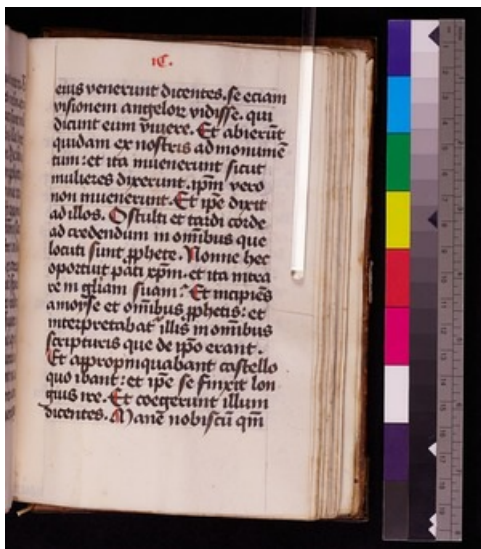 ıC.
eius venerunt dicentes. se eciam
visionem angeloꝝ vidisse. qui
dicunt eum viuere. Et abierūt
quidam ex nostris ad monumē
tum: et ita inuenerunt sicut
mulieres dixerunt. ip̄m vero
non inuenerunt. Et ip̄e dixit
ad illos. O stulti et tardi corde
ad credendum in om̄ibus que
locuti sunt ꝓphete. Nonne hec
oportuit pati xp̄m. et ita intra
re in gl̄iam suam? Et incipiēs
a moyse et om̄ibus ꝓphetis: et
interpretabat̉ illis in om̄ibus
scripturis que de ip̄o erant.
Et appropinquabant castello
quo ibant: et ip̄e se finxit lon
gius ire. Et coegerunt illum
dicentes. Mane nobiscū qm̄